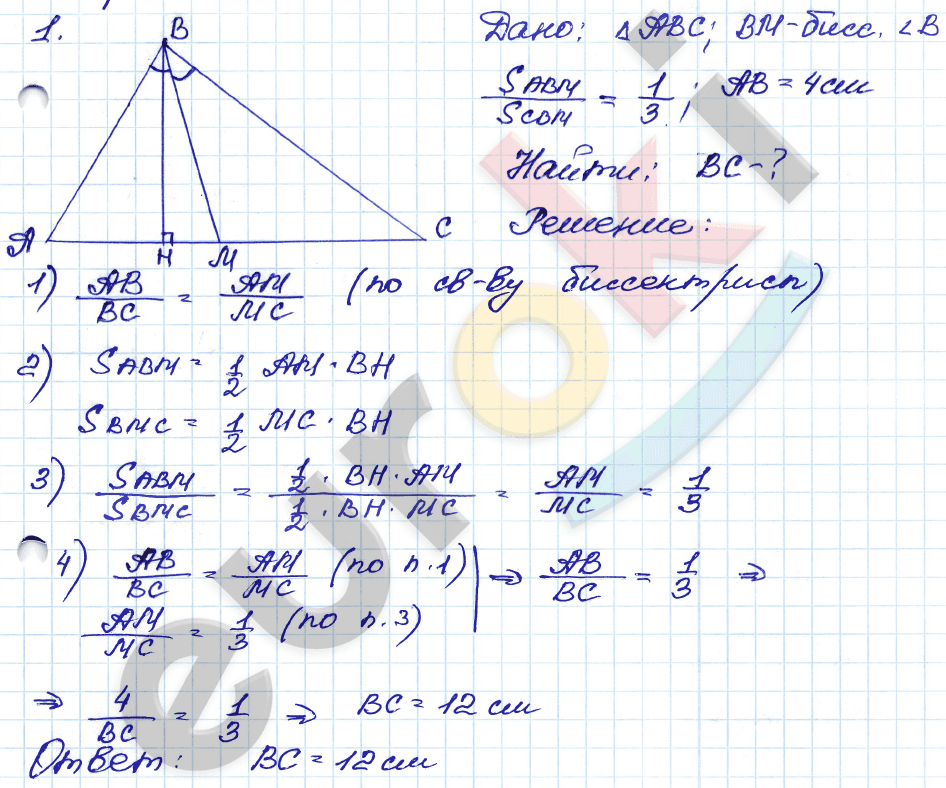 1.
B
A
H
M
C
Дано: △ABC; BM-бисс. ∠B
S_ABM/S_CBM = 1/3; AB = 4 см
Найти: BC-?
Решение:
1) AB/BC = AM/MC (по св-ву биссектрисы)
2) S_ABM = 1/2 AM · BH
S_BMC = 1/2 MC · BH
3) S_ABM/S_BMC = (1/2 · BH · AM)/(1/2 · BH · MC) = AM/MC = 1/3
4) AB/BC = AM/MC (по п.1) | ⇒ AB/BC = 1/3 ⇒
AM/MC = 1/3 (по п.3)
⇒ 4/BC = 1/3 ⇒ BC = 12 см
Ответ: BC = 12 см
euroki